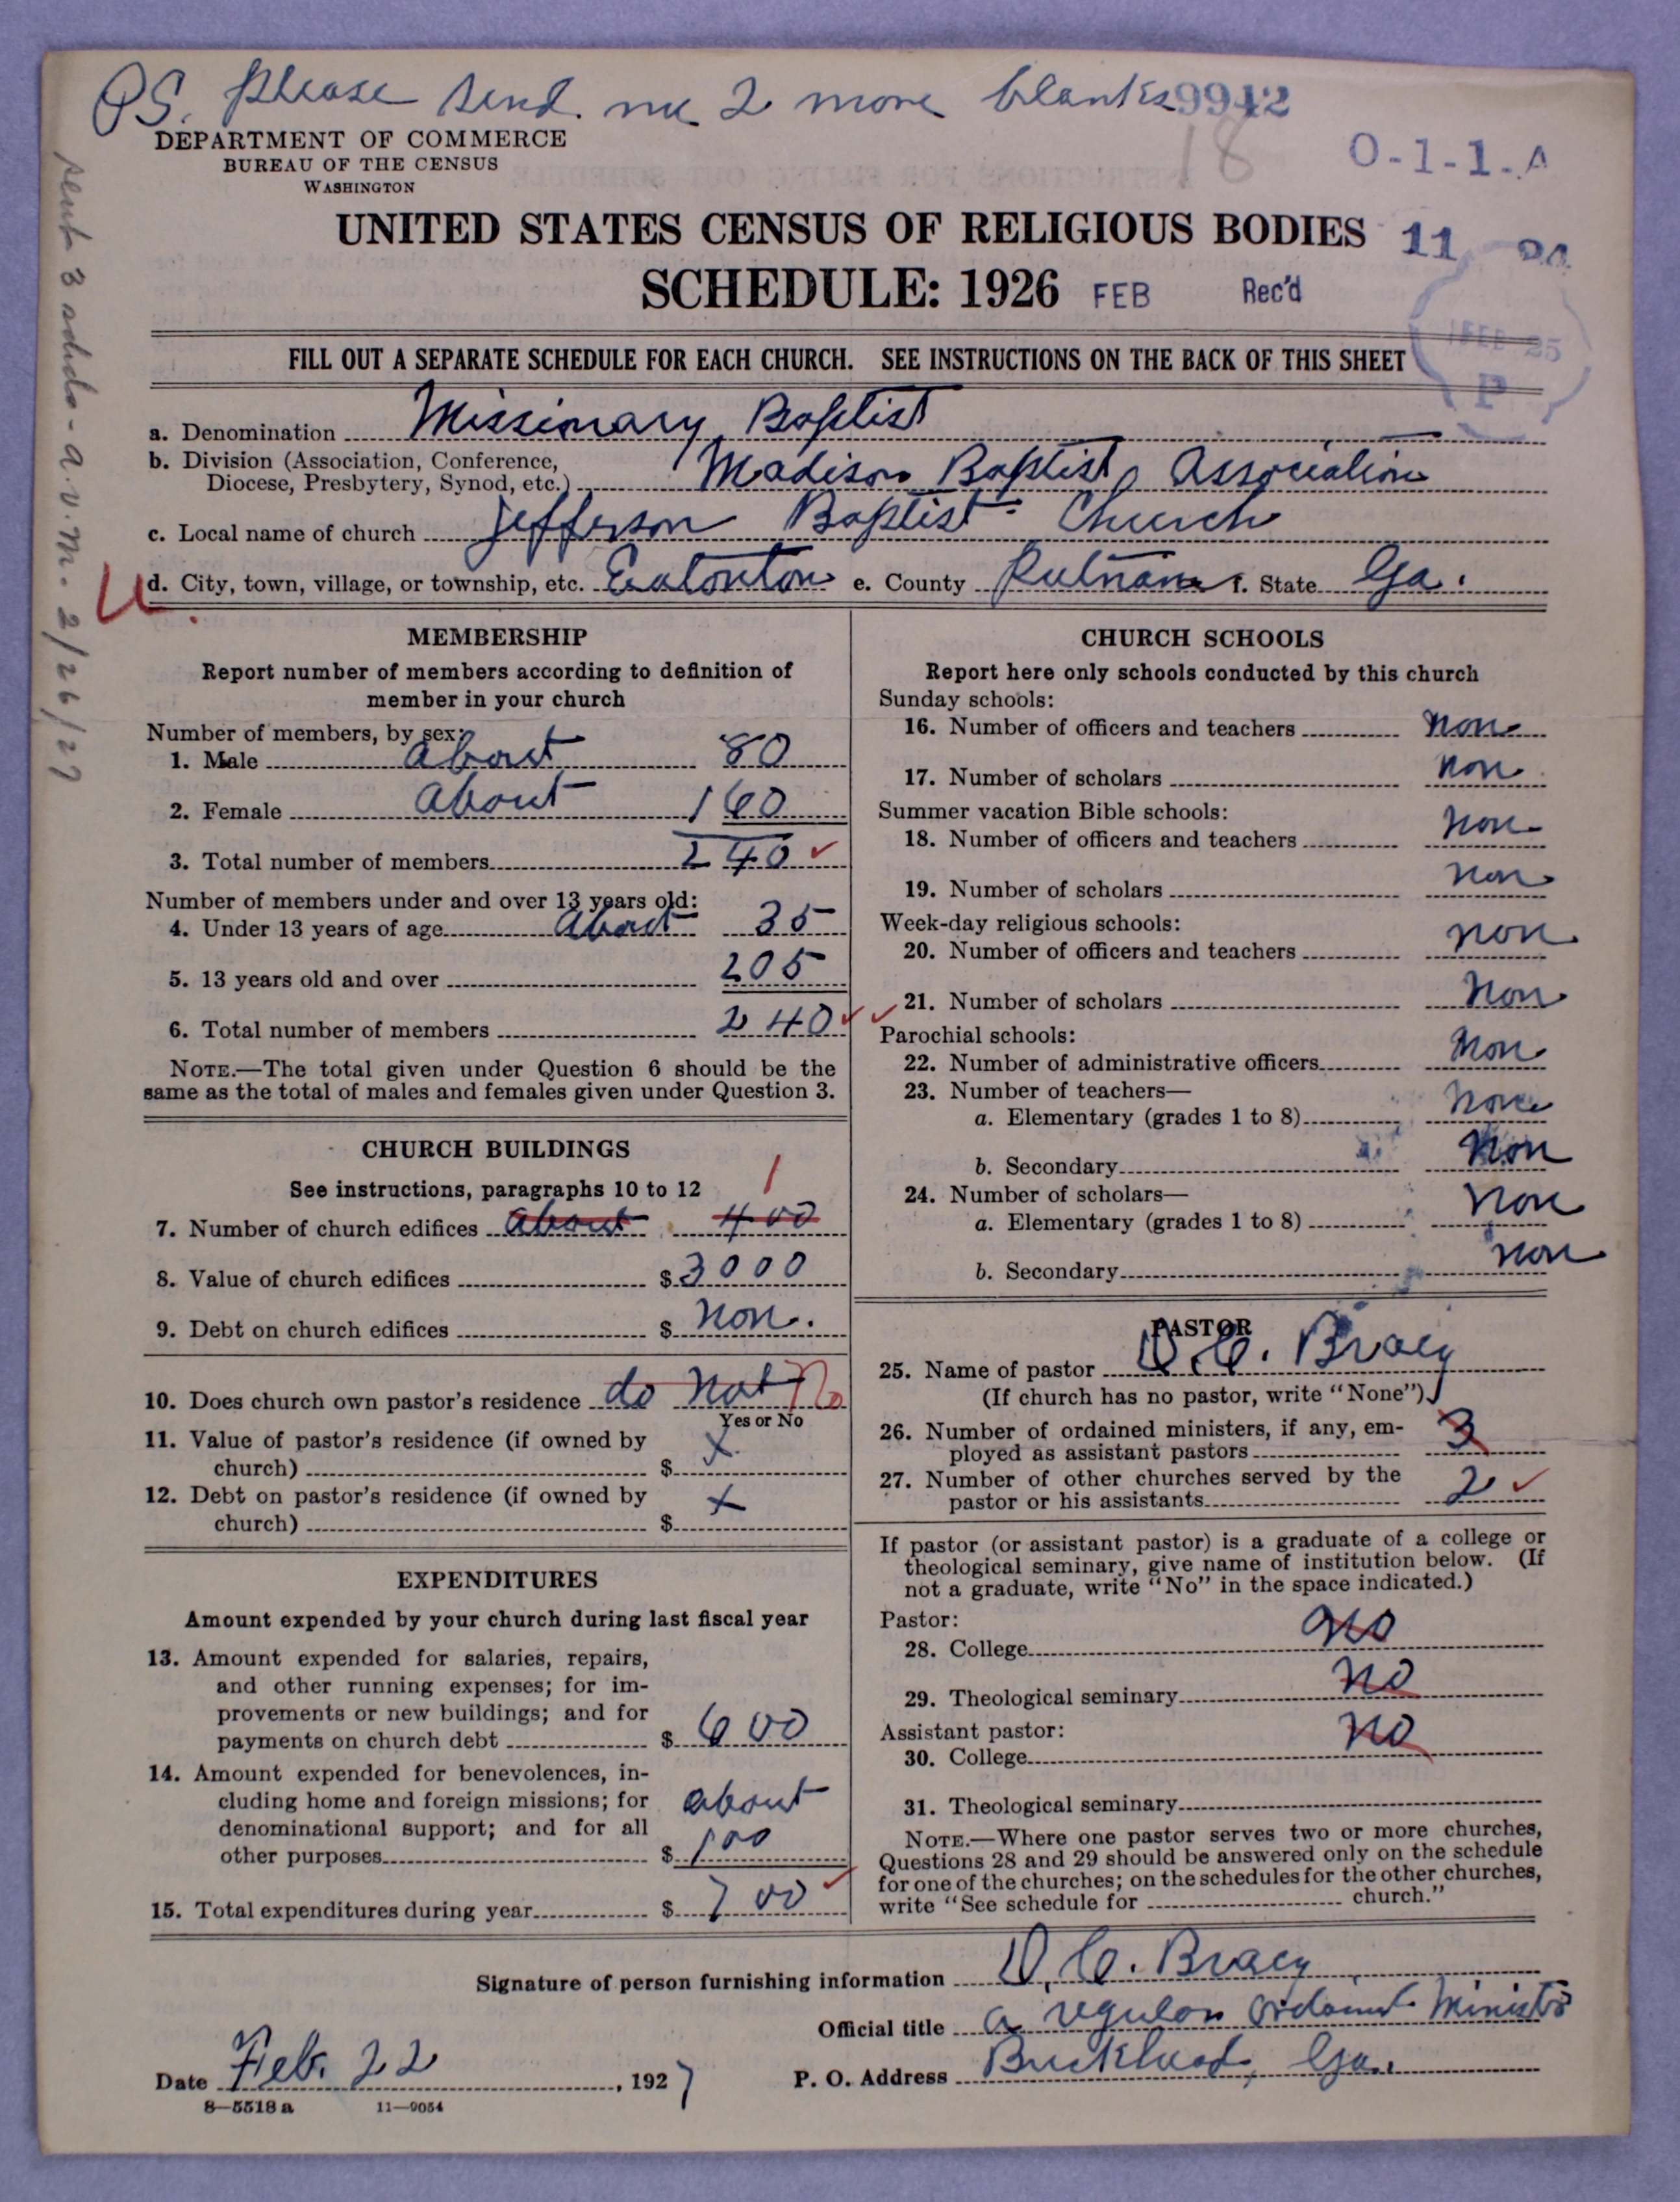 PS. please send me 2 more blanks 9942
18
DEPARTMENT OF COMMERCE
BUREAU OF THE CENSUS
WASHINGTON
O-1-1-A
UNITED STATES CENSUS OF RELIGIOUS BODIES 11
SCHEDULE: 1926 FEB Rec'd
FILL OUT A SEPARATE SCHEDULE FOR EACH CHURCH. SEE INSTRUCTIONS ON THE BACK OF THIS SHEET
25
P
a. Denomination Missionary Baptist
b. Division (Association, Conference,
Diocese, Presbytery, Synod, etc.) Madison Baptist Association
c. Local name of church Jefferson Baptist Church
d. City, town, village, or township, etc. Eatonton e. County Putnam f. State Ga.
sent 3 scheds - a.v.m. 2/26/27
MEMBERSHIP
Report number of members according to definition of
member in your church
Number of members, by sex:
1. Male about 80
2. Female about 160
3. Total number of members 240 ✓
Number of members under and over 13 years old:
4. Under 13 years of age about 35
5. 13 years old and over 205
6. Total number of members 240 ✓
NOTE.—The total given under Question 6 should be the
same as the total of males and females given under Question 3.
CHURCH BUILDINGS
See instructions, paragraphs 10 to 12 1
7. Number of church edifices about 400
8. Value of church edifices $ 3000
9. Debt on church edifices $ non.
10. Does church own pastor's residence do not No
Yes or No
11. Value of pastor's residence (if owned by
church) $ x
12. Debt on pastor's residence (if owned by
church) $ x
EXPENDITURES
Amount expended by your church during last fiscal year
13. Amount expended for salaries, repairs,
and other running expenses; for im-
provements or new buildings; and for
payments on church debt $ 600
14. Amount expended for benevolences, in-
cluding home and foreign missions; for
denominational support; and for all
other purposes $ about 100
15. Total expenditures during year $ 700 ✓
CHURCH SCHOOLS
Report here only schools conducted by this church
Sunday schools:
16. Number of officers and teachers non
17. Number of scholars non
Summer vacation Bible schools:
18. Number of officers and teachers non
19. Number of scholars non
Week-day religious schools:
20. Number of officers and teachers non
✓ 21. Number of scholars non
Parochial schools:
22. Number of administrative officers non
23. Number of teachers—
a. Elementary (grades 1 to 8) none
b. Secondary non
24. Number of scholars—
a. Elementary (grades 1 to 8) non
b. Secondary non
PASTOR
25. Name of pastor D. C. Bracy
(If church has no pastor, write "None")
26. Number of ordained ministers, if any, em-
ployed as assistant pastors 3
27. Number of other churches served by the
pastor or his assistants 2 ✓
If pastor (or assistant pastor) is a graduate of a college or
theological seminary, give name of institution below. (If
not a graduate, write "No" in the space indicated.)
Pastor:
28. College no
29. Theological seminary no
Assistant pastor:
30. College no
31. Theological seminary
NOTE.—Where one pastor serves two or more churches,
Questions 28 and 29 should be answered only on the schedule
for one of the churches; on the schedules for the other churches,
write "See schedule for church."
Signature of person furnishing information D. C. Bracy
Official title a regular ordaind Minister
Date Feb. 22, 1927 P. O. Address Buckhead, Ga.
8—5518 a 11—9054